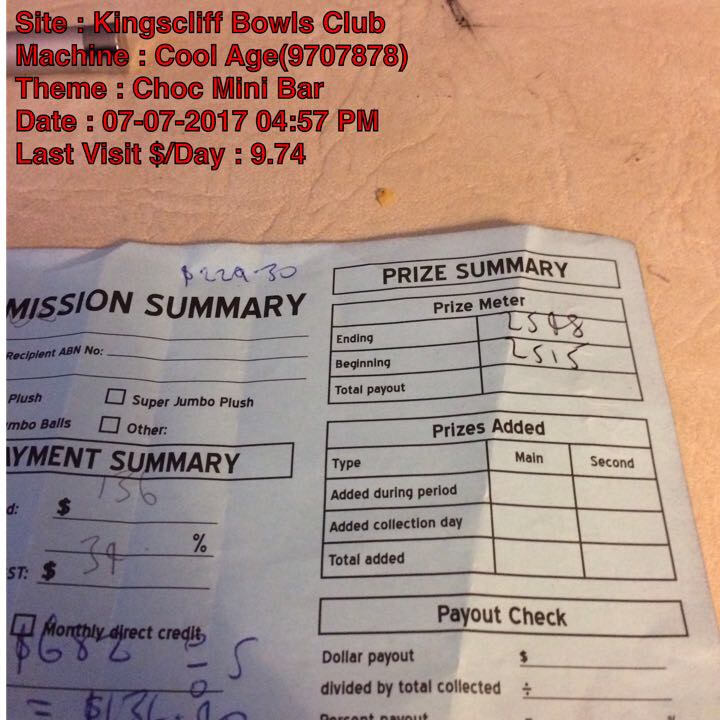 Site : Kingscliff Bowls Club
Machine : Cool Age(9707878)
Theme : Choc Mini Bar
Date : 07-07-2017 04:57 PM
Last Visit $/Day : 9.74
$229.30
MISSION SUMMARY
Recipient ABN No:
Plush
Super Jumbo Plush
mbo Balls
Other:
YMENT SUMMARY
d: $ 156
%
ST: $ 34
Monthly direct credit
$682 ÷ 5
= $136.
PRIZE SUMMARY
Prize Meter
Ending 2548
Beginning 2515
Total payout
Prizes Added
Type Main Second
Added during period
Added collection day
Total added
Payout Check
Dollar payout $
divided by total collected ÷
Percent payout %